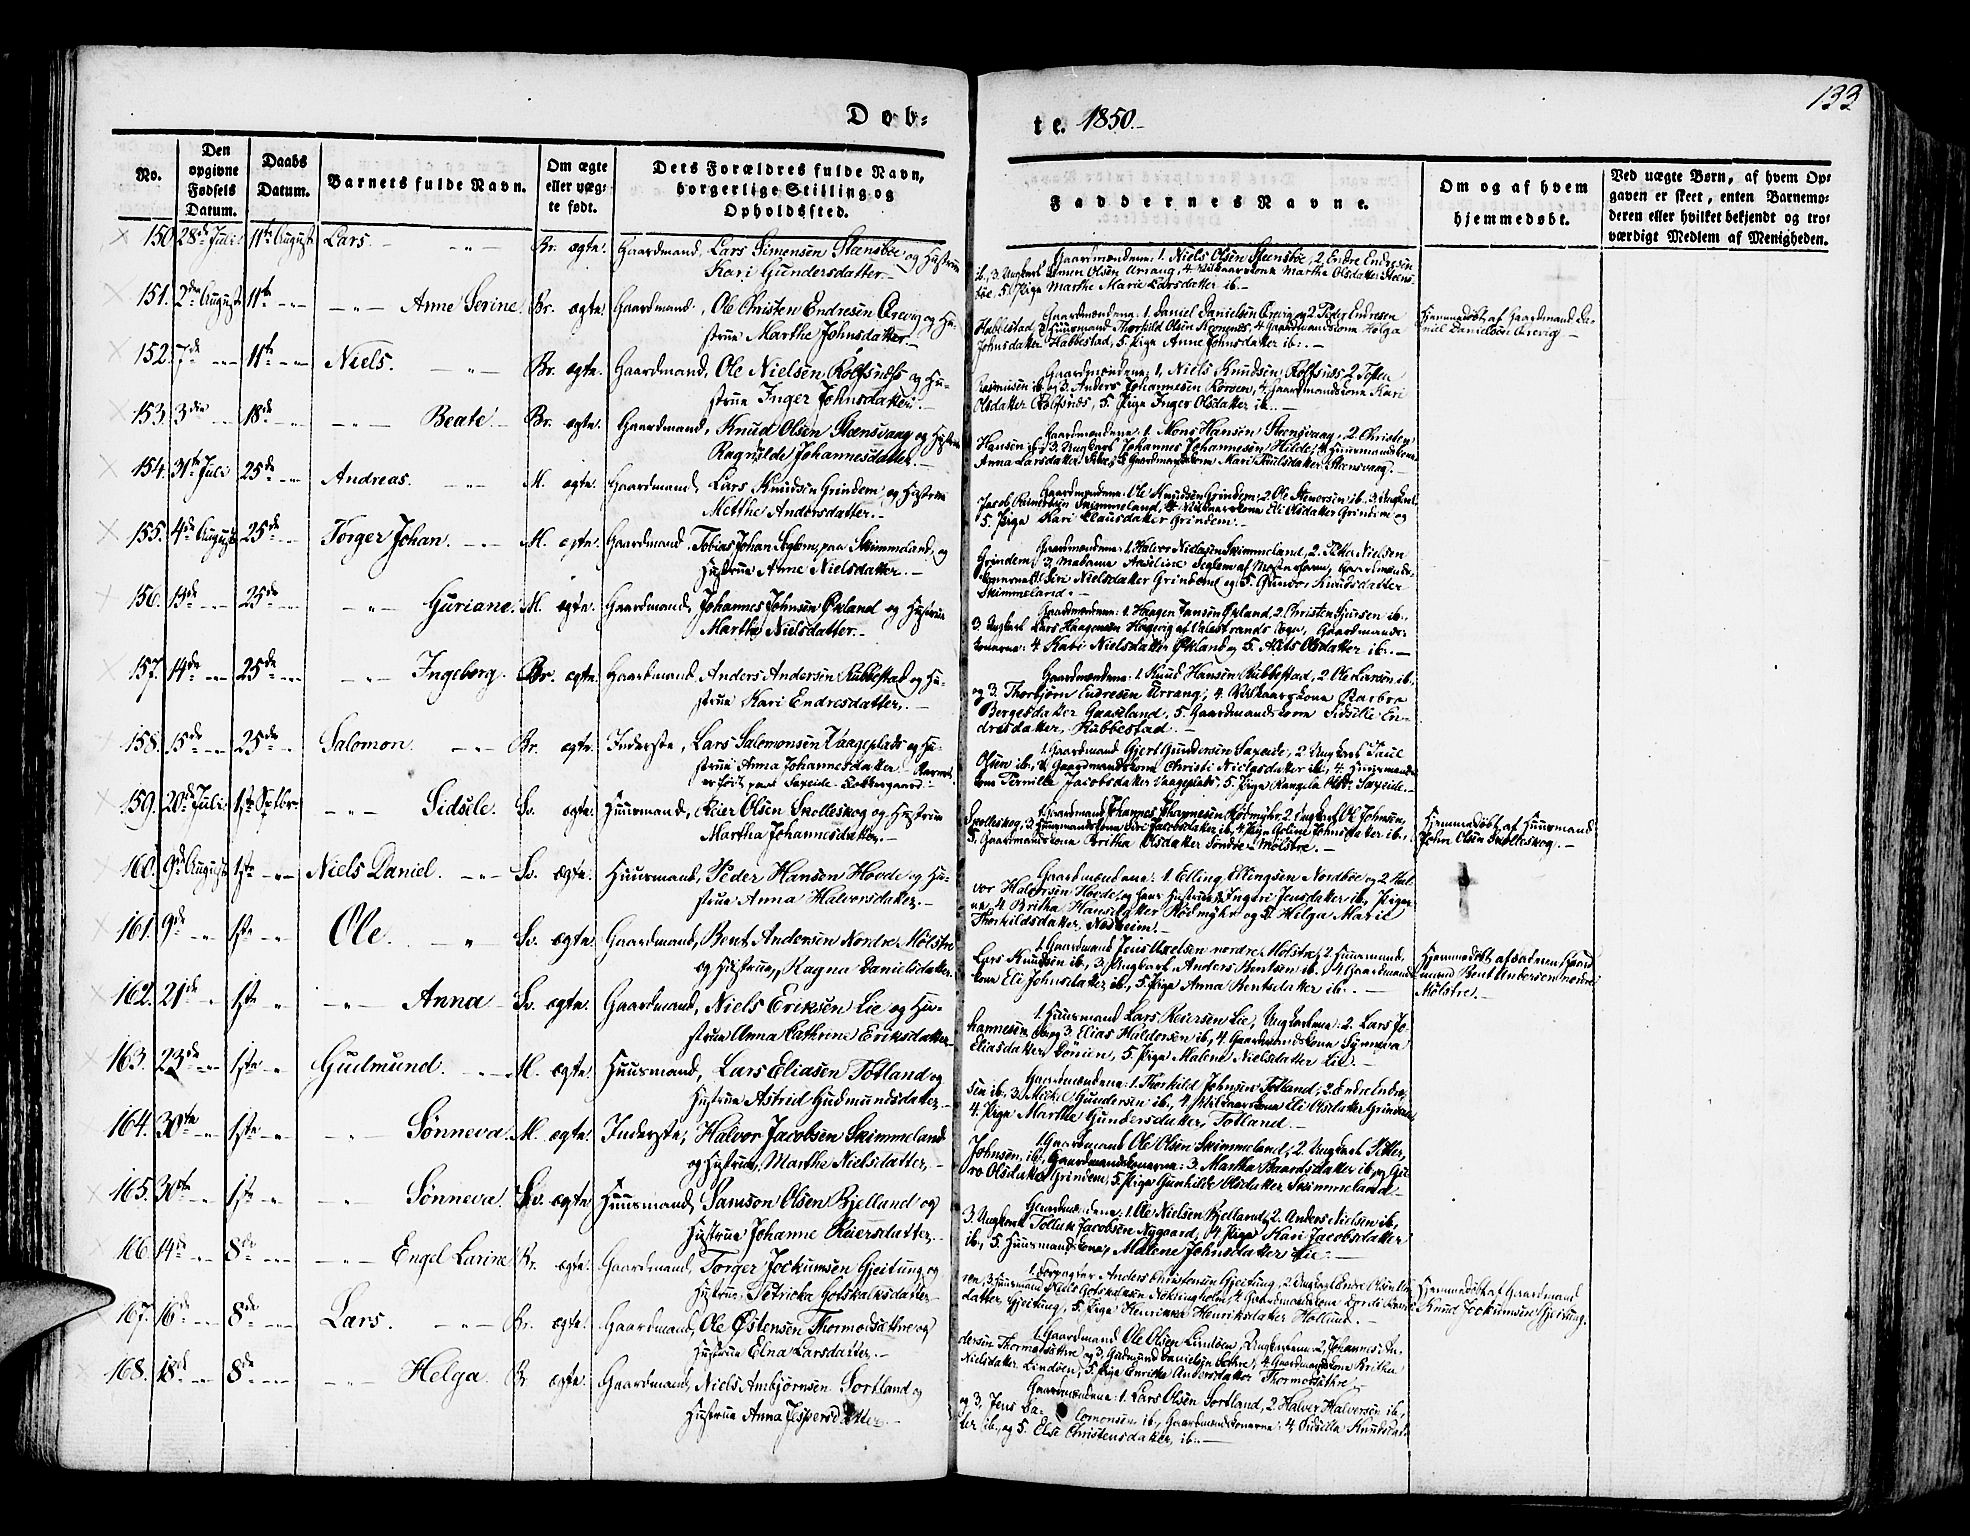 Døb-
te. 1850.-
133
No.
Den opgivne Fødsels Datum.
Daabs Datum.
Barnets fulde Navn.
Om ægte eller uæg- te født.
Dets Forældres fulde Navn, borgerlige Stilling og Opholdssted.
Faddernes Navne.
Om og af hvem hjemmedøbt.
Ved uægte Børn, af hvem Op-
gaven er skeet, enten Barnemo-
deren eller hvilket bekjendt og tro-
værdigt Medlem af Menigheden.
150. 28de Juli. 11te August Lars. Br. ægte. Gaardmand, Lars Simensen Steensbøe og Hustrue
Kari Gundersdatter.-
Gaardmændene: 1. Niels Olsen Steensbøe, 2. Endre Endresen
ib., 3. Ungkarl Simen Olsen Urrang, 4. Vilkaarskone Marthe Olsdatter Steens-
bøe, 5. Pige Marthe Marie Larsdatter ib.-
151. 2den August 11te Anne Serine. Br. ægte. Gaardmand, Ole Christen Endresen Ørevig og Hu-
strue Marthe Johnsdatter.-
Gaardmændene: 1. Daniel Danielsen Ørevig og 2 Peder Endresen
Habbestad, 3 Huusmand Thorkild Olsen 4 Gaardmandskone Helga
Johnsdatter Habbestad, 5. Pige Anne Johnsdatter ib.-
Hjemmedøbt af Gaardmand Da-
niel Danielsen Ørevig.-
152. 7de 11te Niels. Br. ægte. Gaardmand, Ole Nielsen Rølfsnæs og Hu-
strue Inger Johnsdatter.-
Gaardmændene: 1, Niels Knudsen, Rolfsnæs 2 Tosten
Rasmusen ib og 3. Anders Johannesen 4. Gaardmandskone Kari
Olsdatter Rolfsnæs, 5. Pige Inger Olsdatter ib.-
153. 3die 18de Beate. Br. ægte. Gaardmand, Knud Olsen Steensvaag og Hustrue
Ragnilde Johannesdatter.-
Gaardmændene: 1. Mons Hansen Steensvaag, 2. Christen
Hansen ib, 3. Ungkarl Johannes Johannesen Hilde, 4. Huusmandskone
Anna Larsdatter 5. Gaardmandskone Mari Poulsdatter Steensvaag.-
154. 31te Juli 25de Andreas. M. ægte. Gaardmand, Lars Knudsen Grindem, og Hustrue
Methe Andersdatter.-
Gaardmændene: Ole Knudsen Grindem, 2. Ole Steenersen ib. 3. Ungkarl
Jacob Skimmeland, 4. Vilkaarskone Eli Olsdatter Grindem og
5. Pige Kari Clausdatter Grindem.-
155. 4de August 25de Torger Johan. M. ægte. Gaardmand, Tobias Johan Seglem, paa Skimmeland, og
Hustrue Anne Nielsdatter.-
Gaardmændene: 1. Halvor Nielsen Skimmeland, 2. Petter Nielsen
Grindem, 3. Madame Axeline Seglem af Mosterhavn, Gaardmands-
konerne: Siri Nielsdatter Grindem og 5. Gunvor Knudsdatter
Skimmeland.-
156. 19de 25de Guriane. M. ægte. Gaardmand, Johannes Johnsen Økland og Hustrue
Martha Nielsdatter.-
Gaardmændene: 1. Haagen Jansen Økland, 2. Christen Sjursen ib.,
3. Ungkarl Lars Haagensen Hogevig af Valestrands Sogn, Gaardmands-
konerne: 4 Kari Nielsdatter Økland og 5. Olsdatter ib.-
157. 14de 25de Ingeborg. Br. ægte. Gaardmand, Anders Andersen Rubbestad og Hu-
strue Kari Endresdatter.-
Gaardmændene: 1 Knud Hansen Rubbestad, 2 Ole Larsen ib.
og 3. Thorbjørn Endresen Urrang, 4. Vilkaarskone Barbro
Børgesdatter Gaaseland, 5. Gaardmandskone Sidsille En-
dresdatter, Rubbestad.-
158. 15de 25de Salomon. Br. ægte. Inderste, Lars Salomonsen Vaageplads og Hu-
strue Anna Johannesdatter. Barnet
er født paa Saxeide Kobbergaard.-
1. Gaardmand Gjert Gundersen Saxeide, 2 Ungkarl Paul
Olsen ib., 3. Gaardmandskone Christi Nielsdatter ib., 4. Huusmands-
kone Pernille Jacobsdatter Vaageplads, 5. Pige Rangela Olsdtr. Saxeide.-
159. 20de Juli. 1ste Septbr. Sidsele. Sv. ægte. Huusmand, Reier Olsen Skolleskog og Hustrue
Martha Johannesdatter.-
1. Gaardmand Johannes Johannesen Rødmyhr, 2 Ungkarl Ole Johnsen,
Skolleskog, 3. Huusmandskone Siri Jacobsdatter ib., 4. Pige Goline Johnsdatter ib.,
5. Gaardmandskone Britha Olsdatter Søndre Mølstre.-
Hjemmedøbt af Huusmand
John Olsen Skolleskog.-
160. 9de August 1ste Niels Daniel. Sv. ægte. Huusmand, Peder Hansen Hovde og Hu-
strue Anna Halvorsdatter.-
Gaardmændene: 1. Elling Ellingsen Nordbøe og 2. Hal-
vor Halvorsen Hovde, og hans Hustrue 3. Ingeri Jensdatter ib., Piger-
ne, 4. Britha Hansdatter Rødmyhr og 5. Helga Marie
Thorkildsdatter,
161. 9de 1ste Ole. Sv. ægte. Gaardmand, Bent Andersen Nordre Mølstre
og Hustrue, Ragna Danielsdatter.
1. Gaardmand Jens Axelsen nordre Mølstre, 2 Huusmand
Lars Knudsen ib., 3, Ungkarl Anders Bentsen ib., 4 Gaardmands-
kone Eli Johnsdatter ib., 5. Pige Anna Bentsdatter ib.-
Hjemmedøbt af Faderen Gaard-
mand Bent Andersen nordre
Mølstre.-
162. 21de 1ste Anna Sv. ægte. Gaardmand, Niels Eriksen Lie og Hu-
strue Anna Cathrine Eriksdatter.-
1. Huusmand Lars Reiersen Lie, Ungkarlene: 2. Lars Jo-
hannesen Berg 3. Elias Haldorsen ib., 4 Gaardmandskone Synneva
Eliasdatter 5. Pige Malene Nielsdatter Lie.-
163. 23de 1ste Gudmund. M. ægte. Huusmand, Lars Eliasen Totland og
Hustrue Astrid Gudmundsdatter.-
Gaardmændene: 1. Thorkild Johnsen Totland, 2. Endre Endre-
sen ib., 3. Michel Gundersen ib., 4. Vilkaarskone Eli Olsdatter Grindem
4. Pige Marthe Gundersdatter, Totland.-
164. 30te 1ste Sønneva. M. ægte. Inderste, Halvor Jacobsen Skimmeland
og Hustrue, Marthe Nielsdatter.-
1. Gaardmand Ole Olsen Skimmeland, 2 Ungkarl Petter
Johnsen, ib., Gaardmandskonerne: 3. Martha Baardsdatter ib, og Gu-
ro Olsdatter Grindem, 5. Pige Gunhilde Olsdatter Skimmeland.-
165. 30te 1ste Sønneva. Sv. ægte. Huusmand, Samson Olsen Bjelland og
Hustrue Johanne Reiersdatter.-
Gaardmændene: 1 Ole Nielsen Bjelland, 2. Anders Nielsen ib,
3. Ungkarl Tollak Jacobsen Nygaard, 4. Pige Kari Jacobsdatter
ib., 5. Huusmandskone, Malene Johnsdatter Lie.-
166. 14de 8de Engel Larine Br. ægte. Gaardmand, Torger Jockumsen Gjeitung og
Hustrue, Petricka Gotskalksdatter.-
1. Forpagter Anders Christensen Gjeitung, 2 Ungkarl Endre Olsen
3 Huusmand Niels Gotskalksen 4 Gaardmandskone
datter, Gjeitung, 5. Pige Henrikka Henriksdatter Hollund.-
Hjemmedøbt af Gaardmand
Knud Jockumsen Gjeitung.
167. 16de 8de Lars. Br. ægte. Gaardmand, Ole Østensen Thormodsæthre og
Hustrue Elna Larsdatter.-
1. Gaardmand Ole Olsen Lindøen, Ungkarlene: 2, Johannes An-
dersen Thormodsæthre og 3. Gudmund Danielsen Sæthre, 4. Gaardmandskone Britha
Nielsdatter Lindøen, 5. Pige Enrikke Andersdatter Thormodsæthre.-
168. 18de 8de Helga. Br. ægte. Gaardmand, Niels Ambjørnsen Sortland og
Hustrue Anna Jespersdatter.-
Gaardmændene: 1. Lars Olsen Sortland, 2 Halvor Halvorsen ib,
og 3. Jens Sa- lomonsen ib., Gaardmandskonerne: 4, Sidsilla Knudsdat-
ter ib., og 5. Else Christensdatter, ib.-